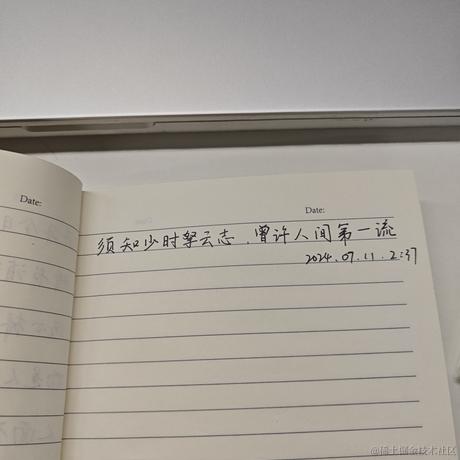 Date:
Date:
须知少时拏云志，曾许人间第一流
2024.07.11.2:37
@稀土掘金技术社区